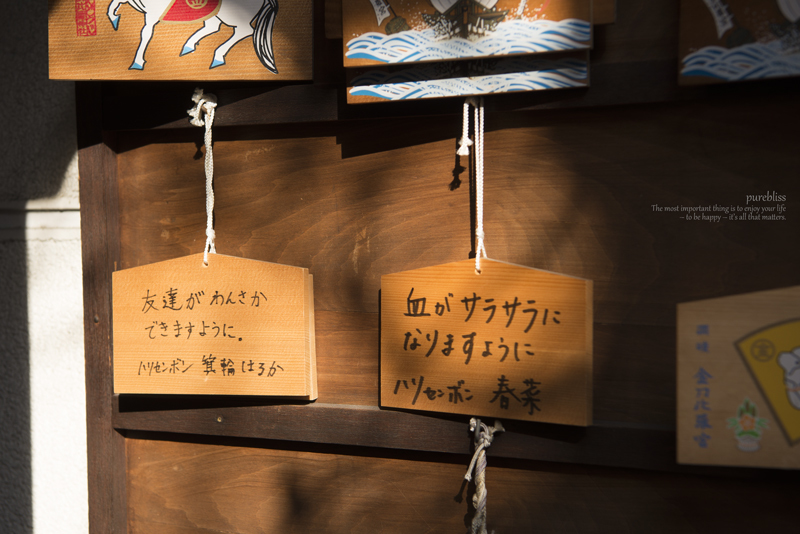 purebliss
The most important thing is to enjoy your life
– to be happy – it's all that matters.
友達がわんさか
できますように。
ハリセンボン 箕輪はるか
血がサラサラに
なりますように
ハリセンボン 春菜
讃岐 金刀比羅宮